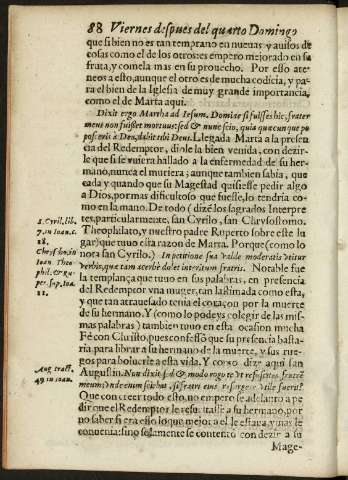 88 Viernes despues del quarto Domingo
que si bien no es tan temprano en nueuas y auisos de
cosas como el de los otros: empero mejorado en su
fruta, y comela mas en su prouecho. Por esso ate-
neos a esto, aunque el otro es de mucha codicia, y pa-
ra el bien de la Iglesia de muy grande importancia,
como el de Marta aqui.
Dixit ergo Martha ad Iesum. Domine si fuisses hic, frater
meus non fuisset mortuus: sed & nunc scio, quia quæcunque po
posceris à Deo, dabit tibi Deus. Llegada Marta a la presen
cia del Redemptor, diole la bien venida, con dezir-
le que si se vuiera hallado a la enfermedad de su her-
mano, nunca el muriera; aunque tambien sabia, que
cada y quando que su Magestad quisiesse pedir algo
a Dios, por mas dificultoso que fuesse, lo tendria co-
mo en la mano. De todo (dizē los sagrados Interpre
tes, particularmente, san Cyrilo, san Chrysostomo,
Theophilato, y nuestro padre Ruperto sobre este lu
gar) que tuuo esta razon de Marta. Porque (como lo
nota san Cyrilo.) In petitione sua valde moderatis vtitur
verbis, quæ tam acerbè dolet interitum fratris. Notable fue
la templança que tuuo en sus palabras, en presencia
del Redemptor vna muger, tan lastimada como esta,
y que tan atrauesado tenia el coraçon por la muerte
de su hermano. Y (como lo podeys colegir de las mis-
mas palabras) tambien tuuo en esta ocasion mucha
Fè con Christo, pues confessò que su presencia basta-
ria, para librar a su hermano de la muerte, y sus rue-
gos para boluerle a esta vida. Y como dize aqui san
Augustin. Non dixit sed & modo rogo te vt resuscites fratrē
meum: Vnde enim sciebat, si fratri eius resurgere vtile fuerit?
Que con creer todo esto, no se adelantò a pe
dir que el Redemptor le resuscitasse a su hermano, por
no saber si era esso lo que mejor a el le estaua, y mas le
conuenia: sino solamente se contentò con dezir a su
Mage-
S. Cyril. lib.
7. in Ioan. c.
18.
Chrys. ho. in
Ioan Theo
phil. & Ru-
per. sup. Ioa.
11.
Aug tract.
49 in Ioan.